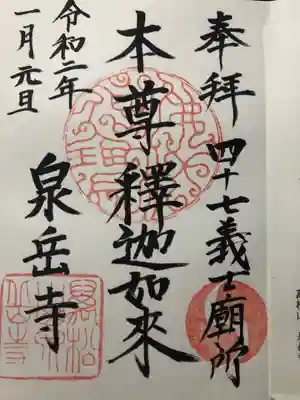 奉拝
四十七義士廟所
本尊釋迦如來
令和二年
一月元旦
泉岳寺